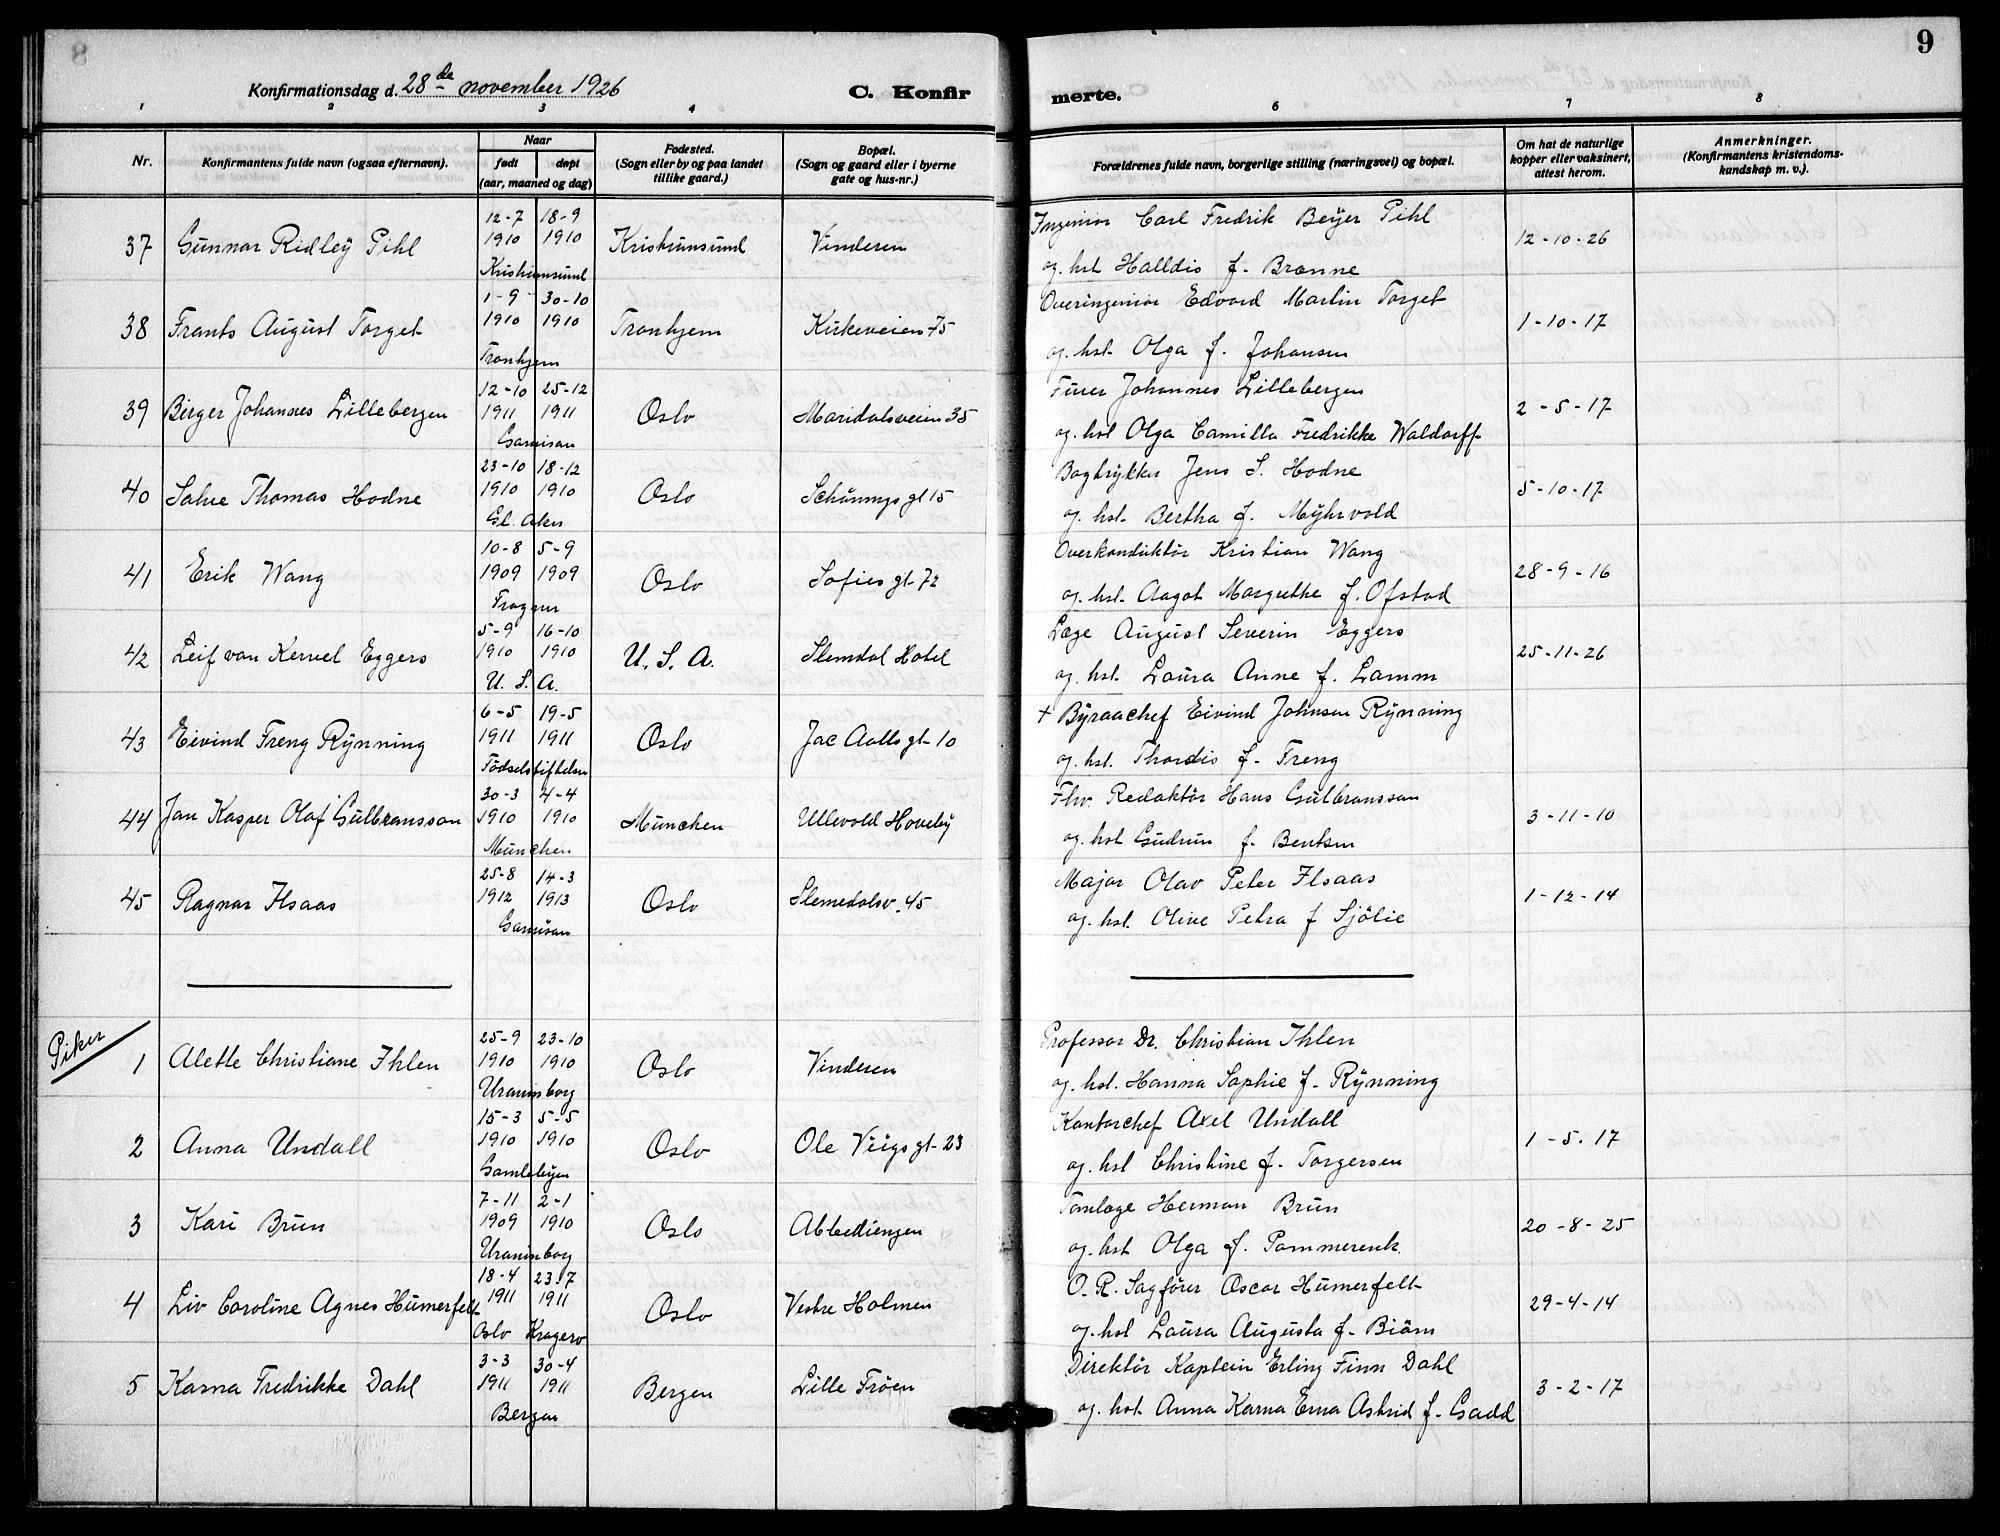 9
Konfirmationsdag d. 28de november 1926
C. Konfirmerte.
1 2 3 4 6 7 8
Nr. Konfirmantens fulde navn (ogsaa efternavn). Naar født døpt (aar, maaned og dag) Fødested. (Sogn eller by og paa landet tillike gaard.) Bopæl. (Sogn og gaard eller i byerne gate og hus-nr.) Forældrenes fulde navn, borgerlige stilling (næringsvei) og bopæl. Om hat de naturlige kopper eller vaksinert, attest herom. Anmerkninger. (Konfirmantens kristendoms-kundskap m. v.).
12-7 18-9 Ingeniør Carl Fredrik Beyer Pihl
37 Gunnar Ridley Pihl 1910 1910 Kristiansund Vinderen 12-10-26
Kristiansund og hst Halldis f. Brænne
1-9 30-10 Overingeniør Edvard Martin Torget
38 Frants August Torget 1910 1910 Tronhjem Kirkeveien 75 1-10-17
Tronhjem og. hst. Olga f. Johansen
12-10 25-12 Furer Johannes Lillebergen
39 Birger Johannes Lillebergen 1911 1911 Oslo Maridalsveien 35 2-5-17
Garnison og. hst Olga Camilla Fredrikke Waldorff
23-10 18-12 Bogtrykker Jens S. Hodne
40 Salve Thomas Hodne 1910 1910 Oslo Schånings gt 15 5-10-17
Gl. Aker og. hst. Bertha f. Myhrvold
10-8 5-9 Overkonduktör Kristian Wang
41 Erik Wang 1909 1909 Oslo Sofies gt 72 28-9-16
Frogner og. hst. Aagot Margrethe f. Ofstad
5-9 16-10 Læge August Severin Eggers
42 Leif van Kervel Eggers 1910 1910 U. S. A. Slemdal Hotel 25-11-26
U. S. A. og. hst. Laura Anne f. Lamm
6-5 19-5 + Byraachef Eivind Johnsen Rynning
43 Eivind Treng Rynning 1911 1911 Oslo Jac Aalls gt 10
Födselstiftelsen og. hst. Thordis f. Treng
30-3 4-4 Fhv. Redaktör Hans Gulbransson
44 Jan Kasper Olaf Gulbransson 1910 1910 München Ullevold Haveby 3-11-10
München og. hst Gudrun f. Bentsen
25-8 14-3 Major Olav Peter Ilsaas
45 Ragnar Ilsaas 1912 1913 Oslo Slemedalsv. 45 1-12-14
Garnison og. hst. Olive Petra f Sjölie
Piker
25-9 23-10 Professor Dr. Christian Ihlen
1 Alette Christiane Ihlen 1910 1910 Oslo Vinderen
Uranienborg og. hst. Hanna Sophie f. Rynning
15-3 5-5 Kontorchef Axel Undall
2 Anna Undall 1910 1910 Oslo Ole Viigs gt 23 1-5-17
Gamlebyen og. hst Christine f. Torgersen
7-11 2-1 Tanlæge Herman Brun
3 Kari Brun 1909 1910 Oslo Abbediengen 20-8-25
Uranienborg og. hst Olga f. Pommerenk.
18-4 23-7 O. R. Sagförer Oscar Humerfelt
4 Liv Caroline Agnes Humerfelt 1911 1911 Oslo Vestre Holmen 29-4-14
Oslo Kragerø og. hst Laura Augusta f. Biörn
3-3 30-4 Direktör Kaptein Erling Finn Dahl
5 Karna Fredrikke Dahl 1911 1911 Bergen Lille Fröen 3-2-17
Bergen og. hst. Anna Karna Erna Astrid f. Gadd